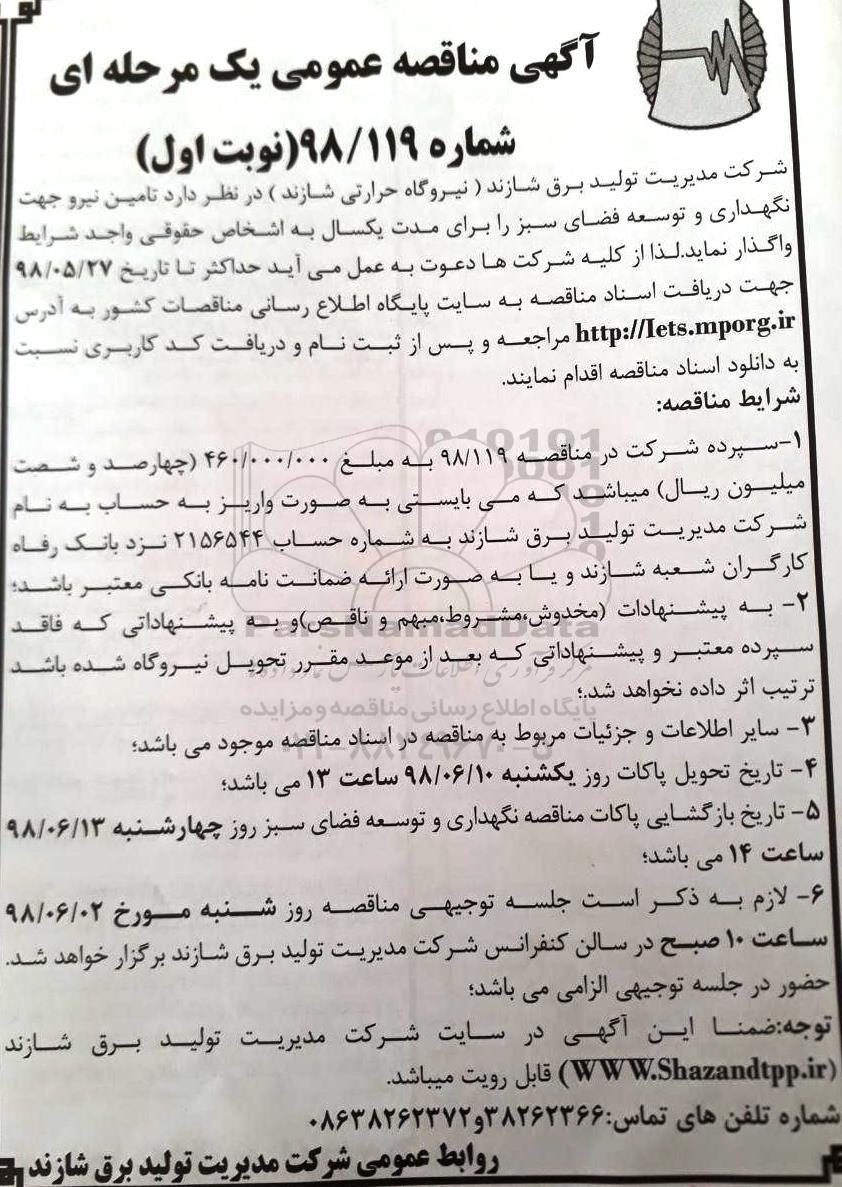 آگهی مناقصه عمومی یک مرحله ای
شماره ۹۸/۱۱۹(نوبت اول)
شرکت مدیریت تولید برق شازند ( نیروگاه حرارتی شازند ) در نظر دارد تامین نیرو جهت
نگهداری و توسعه فضای سبز را برای مدت یکسال به اشخاص حقوقی واجد شرایط
واگذار نماید.لذا از کلیه شرکت ها دعوت به عمل می آید حداکثر تا تاریخ ۹۸/۰۵/۲۷
جهت دریافت اسناد مناقصه به سایت پایگاه اطلاع رسانی مناقصات کشور به آدرس
http://Iets.mporg.ir مراجعه و پس از ثبت نام و دریافت کد کاربری نسبت
به دانلود اسناد مناقصه اقدام نمایند.
شرایط مناقصه:
۱-سپرده شرکت در مناقصه ۹۸/۱۱۹ به مبلغ ۴۶۰/۰۰۰/۰۰۰ (چهارصد و شصت
میلیون ریال) میباشد که می بایستی به صورت واریز به حساب به نام
شرکت مدیریت تولید برق شازند به شماره حساب ۲۱۵۶۵۴۴ نزد بانک رفاه
کارگران شعبه شازند و یا به صورت ارائه ضمانت نامه بانکی معتبر باشد؛
۲- به پیشنهادات (مخدوش،مشروط،مبهم و ناقص)و به پیشنهاداتی که فاقد
ParsNamadData
سپرده معتبر و پیشنهاداتی که بعد از موعد مقرر تحویل نیروگاه شده باشد
ترتیب اثر داده نخواهد شد.؛
پایگاه اطلاع رسانی مناقصه و مزایده
۳- سایر اطلاعات و جزئیات مربوط به مناقصه در اسناد مناقصه موجود می باشد؛
۰۲۱-۸۸۳۴۹۶۷۰-۵
۴- تاریخ تحویل پاکات روز یکشنبه ۹۸/۰۶/۱۰ ساعت ۱۳ می باشد؛
۵- تاریخ بازگشایی پاکات مناقصه نگهداری و توسعه فضای سبز روز چهارشنبه ۹۸/۰۶/۱۳
ساعت ۱۴ می باشد؛
۶- لازم به ذکر است جلسه توجیهی مناقصه روز شنبه مورخ ۹۸/۰۶/۰۲
ساعت ۱۰ صبح در سالن کنفرانس شرکت مدیریت تولید برق شازند برگزار خواهد شد.
حضور در جلسه توجیهی الزامی می باشد؛
توجه:ضمنا این آگهی در سایت شرکت مدیریت تولید برق شازند
(WWW.Shazandtpp.ir) قابل رویت میباشد.
شماره تلفن های تماس:۳۸۲۶۲۳۶۶و۰۸۶۳۸۲۶۲۳۷۲
روابط عمومی شرکت مدیریت تولید برق شازند